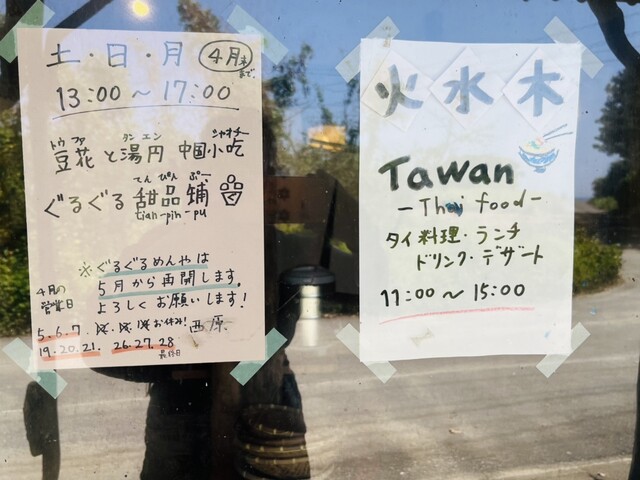 土・日・月 4月末まで
13:00〜17:00
トウファ タン エン シャオチー
豆花と湯円 中国小吃
てん ぴん ぷー
ぐるぐる甜品铺
tian-pin-pu
※ぐるぐるめんやは
5月から再開します。
よろしくお願いします!
4月の
営業日
5.6.7. お休み! 西原
19.20.21. 26.27.28
最終日
火 水 木
Tawan
-Thai food-
タイ料理・ランチ
ドリンク・デザート
11:00〜15:00